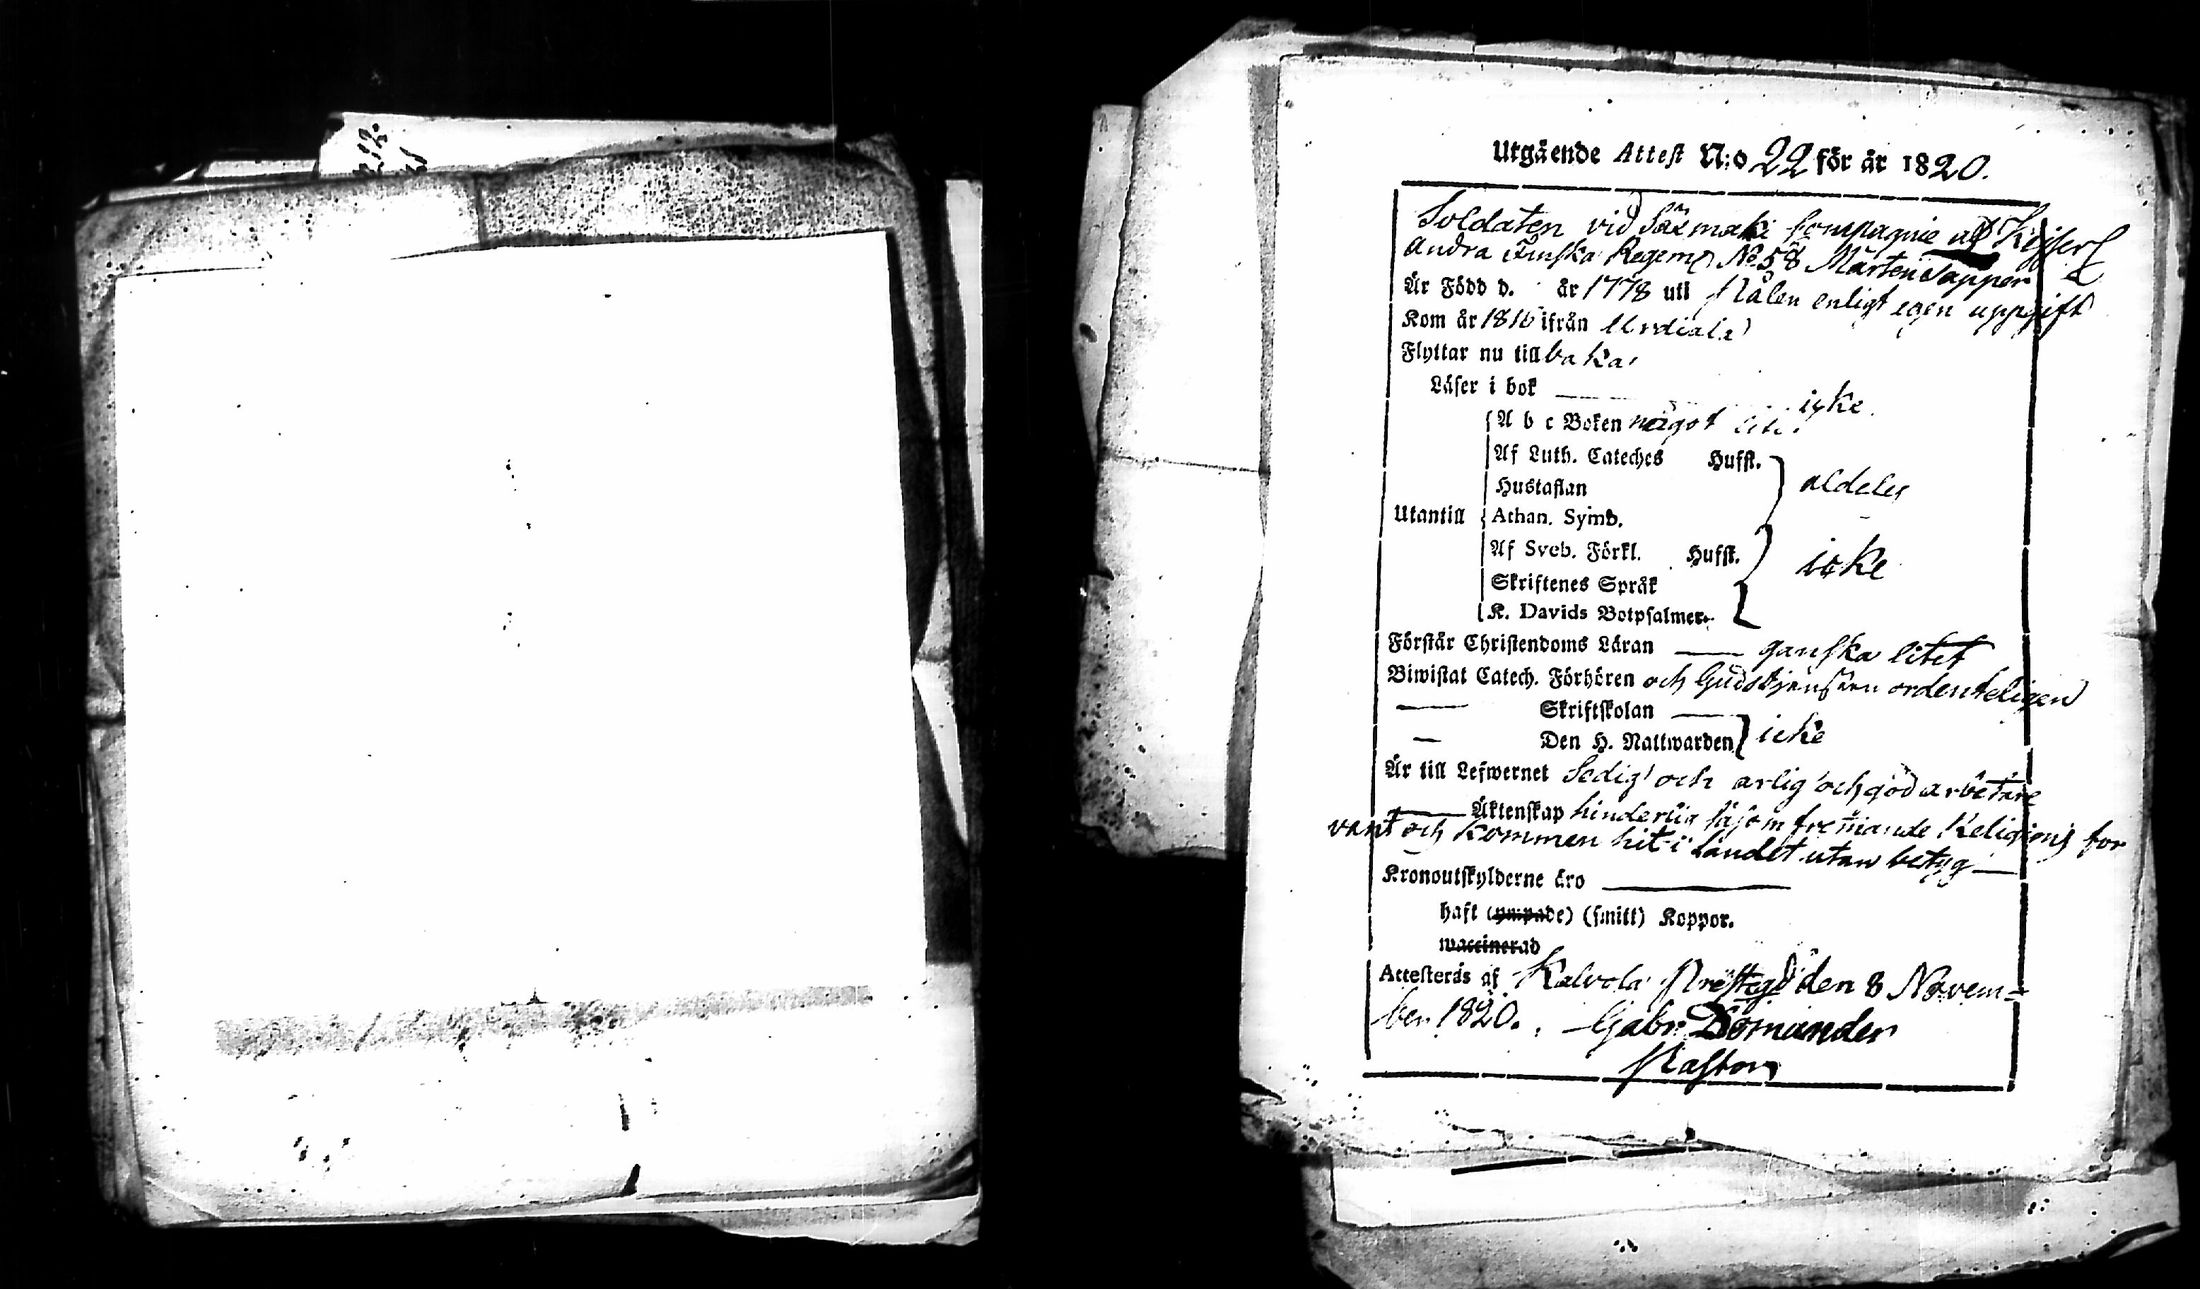 Utgående Attest N:o 22 för år 1820.
Soldaten vid Säxmäki Compagnie af Kejserl
Andra Finska Regem. No 58 Mårten Sapper
Är Född d. år 1778 uti Pålen enligt egen uppgift
Kom år 1816 ifrån Urdiala
Flyttar nu tillbaka
Läser i bok icke
A b c Boken något litet
Af Luth. Cateches Hufst.
Hustaflan aldeles
Utantill Athan. Symb.
Af Sveb. Förkl. Hufst. icke
Skriftenes Språk
K. Davids Botpsalmer.
Förstår Christendoms Läran ganska litet
Biwistat Catech. Förhören och Gudstjensten ordenteligen
Skriftskolan
Den H. Nattwarden icke
Är till Lefwernet Sedig och ärlig och god arbetare
Äktenskap hinderlig såsom främande Religions for
vant och kommen hit i landet utan betyg
Kronoutskylderne äro
haft (ympade) (smitt) Koppor.
waccinerad
Attesteras af Kalvola Prestegd den 8 Novem=
ber 1820. Gabr. Tomander
Pastor